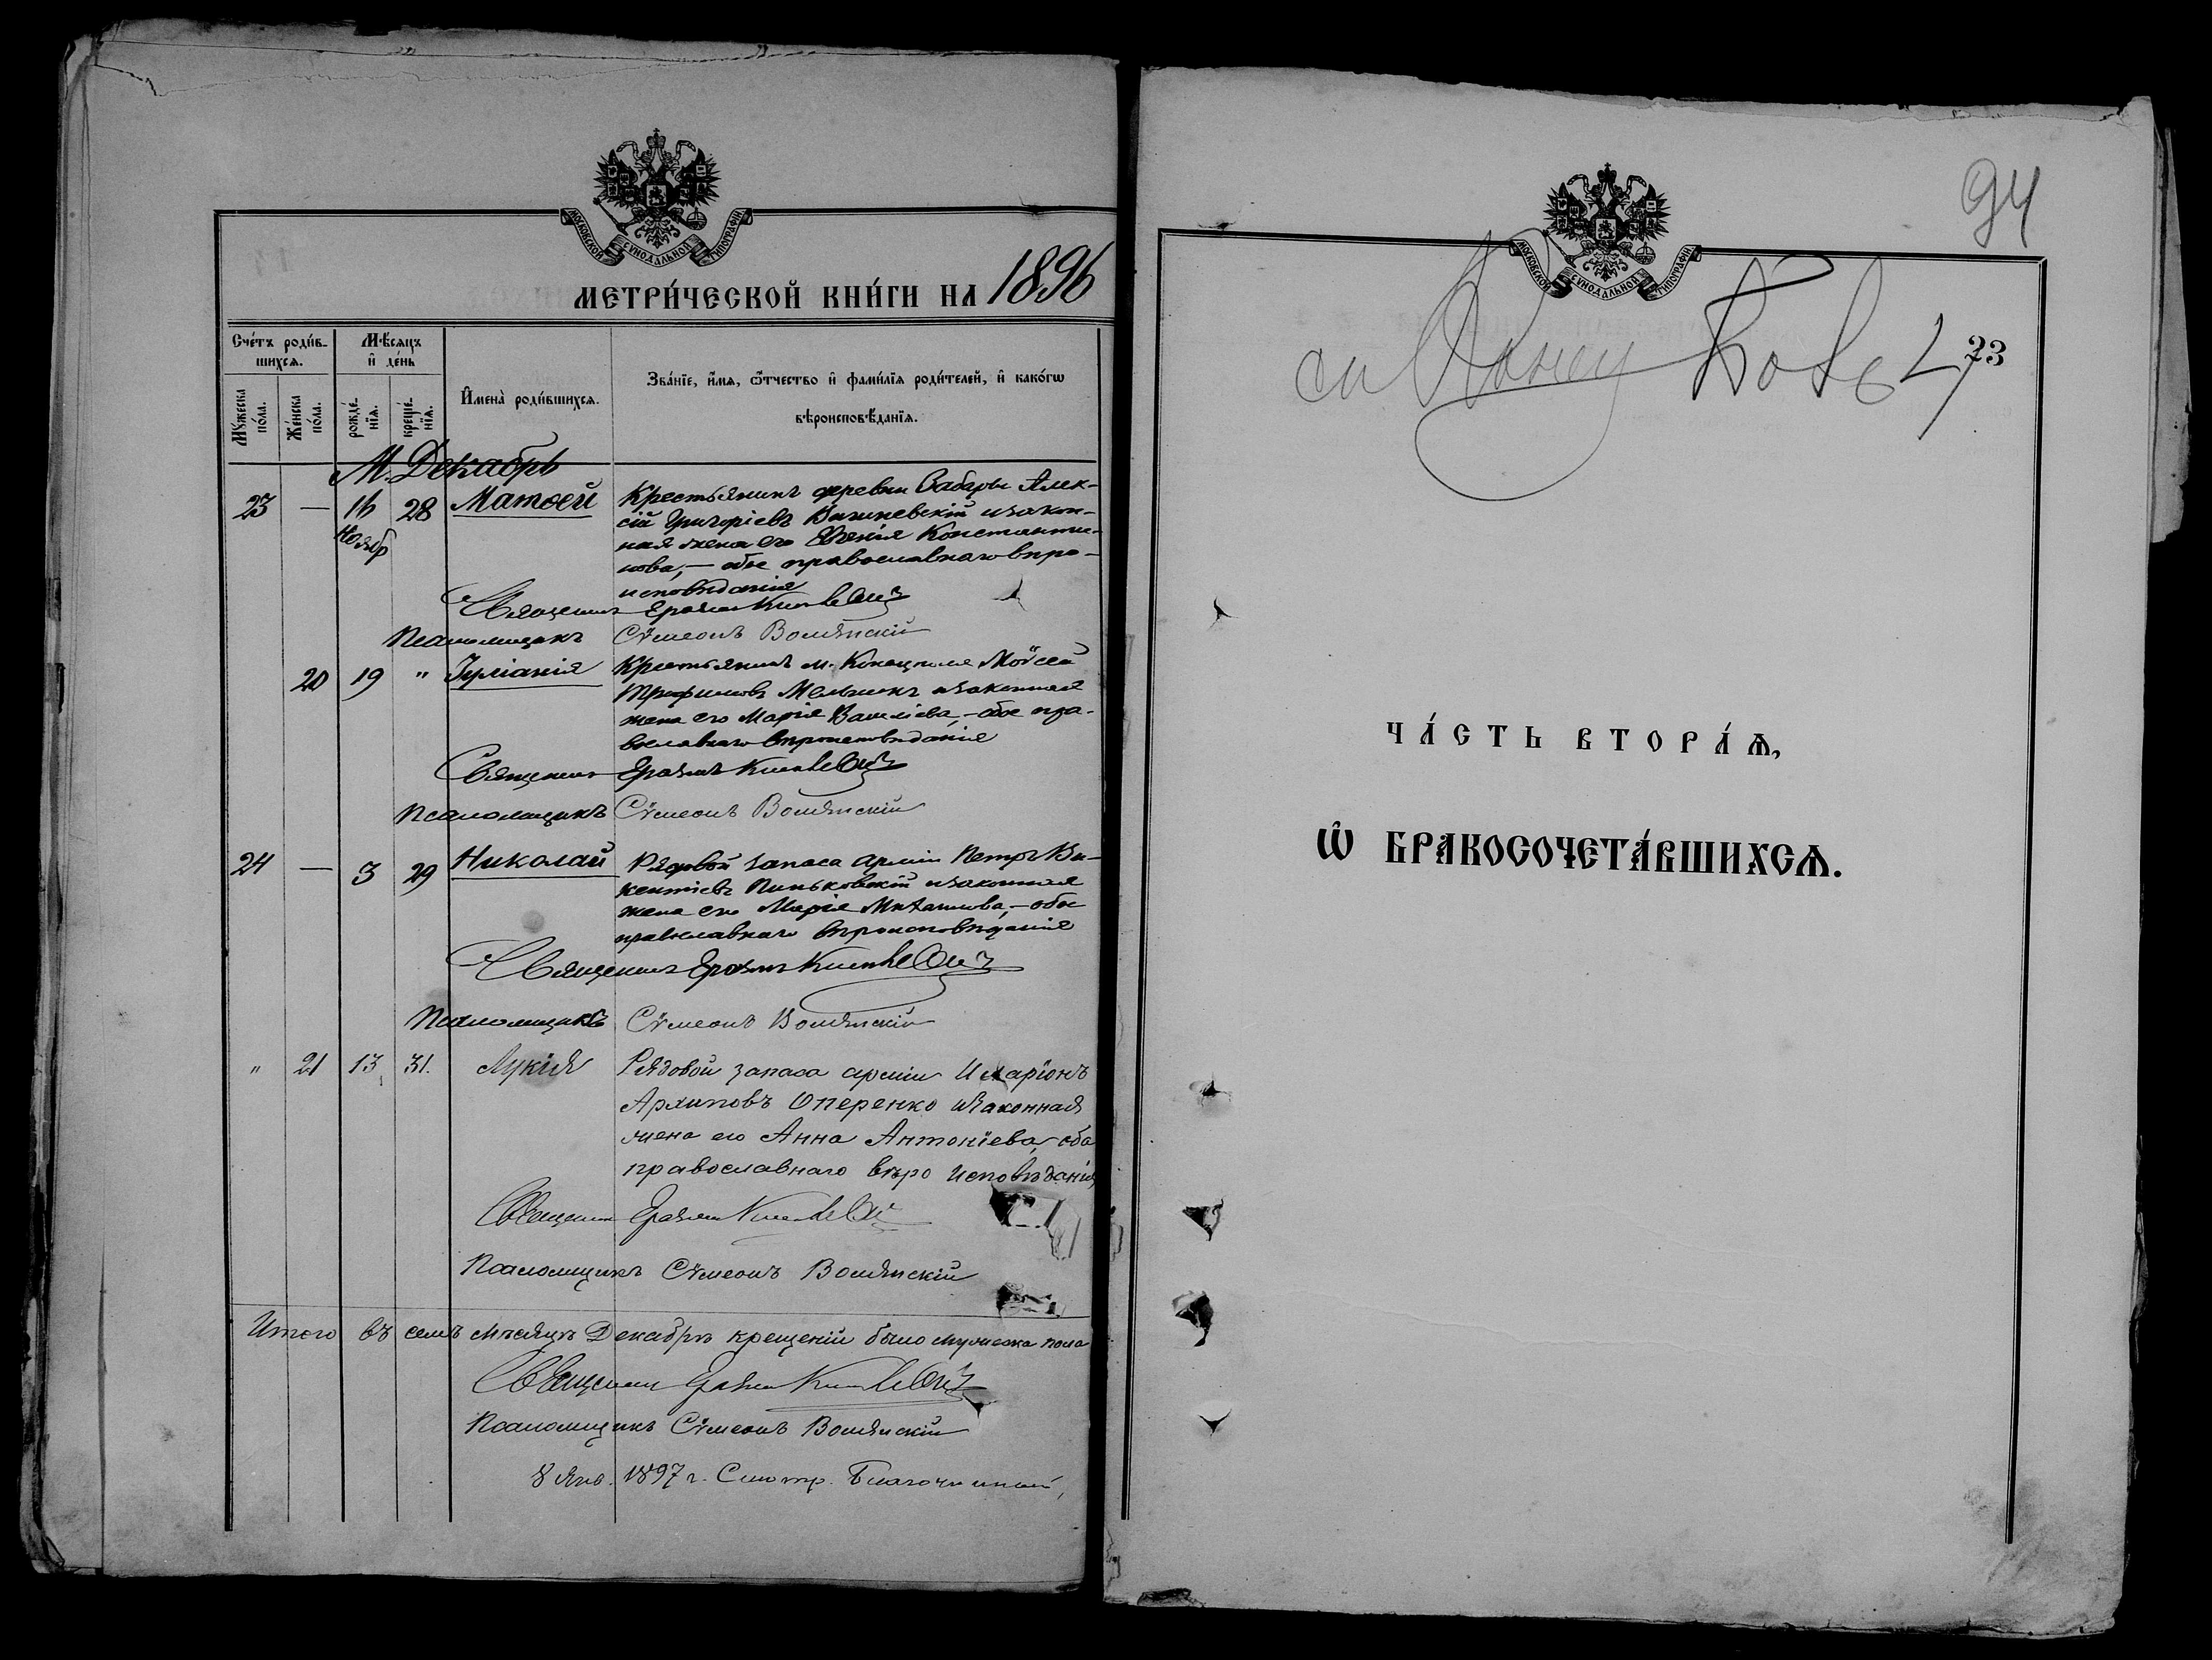 МОСКОВСКОЙ СѴНОДАЛЬНОЙ ТИПОГРАФІИ
МЕТРИ́ЧЕСКОЙ КНИ́ГИ НА 1896
Сче́тъ роди́в-
шихсѧ.
Мꙋ́жеска по́ла.
Же́нска по́ла.
Мѣ́сѧцъ
и҆ де́нь
рожде́-
нїѧ.
креще́-
нїѧ.
И҆мена̀ роди́вшихсѧ.
Зва́нїе, и҆́мѧ, ѻ҆́тчество и҆ фами́лїѧ роди́телей, и҆ како́гѡ
вѣроисповѣ́данїѧ.
М. Декабрь
23 — 16 28 Матѳей Крестьянинъ деревни Сабары Алек-
Ноябр
сій Григоріевъ изакон-
ная жена его Константи-
нова, — обое православнаго вѣро-
исповѣданія
Священникъ
Псаломщикъ Сѵмеонъ
20 19 " Іуліанія Крестьянинъ м. Конецполя Мойсей
Трофимовъ Мельникъ изаконная
жена его Марія Василіева, — обое пра-
вославнаго вѣроисповѣданія
Священникъ
Псаломщикъ Сѵмеонъ
24 — 3 29 Николай Рядовой запаса арміи Петръ Ви-
кентіевъ Пиньковскій изаконная
жена его Марія — обое
православнаго вѣроисповѣданія
Священникъ
Псаломщикъ Сѵмеонъ
" 21 13 31. Лукія Рядовой запаса арміи Иларіонъ
Архиповъ Оперенко изаконная
жена его Анна Антоніева, оба
православнаго вѣро исповѣданія
Священникъ
Псаломщикъ Сѵмеонъ
Итого въ семъ мѣсяцѣ Декабрѣ крещеній было мужеска пола
Священникъ
Псаломщикъ Сѵмеонъ
8 Янв. 1897 г. Смотр. Благочинный,
94
МОСКОВСКОЙ СѴНОДАЛЬНОЙ ТИПОГРАФІИ
23
ЧА́СТЬ ВТОРА́Ѧ,
Ѽ БРАКОСОЧЕТА́ВШИХСѦ.